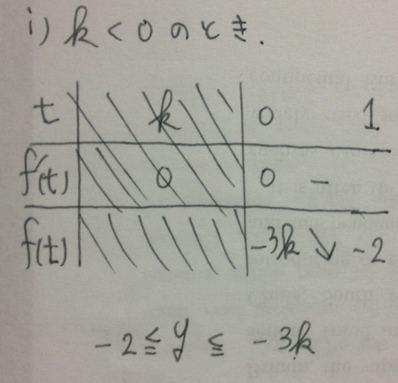 i) k < 0 のとき.
t k 0 1
f(t) 0 0 -
f(t) -3k ↘ -2
-2 ≦ y ≦ -3k